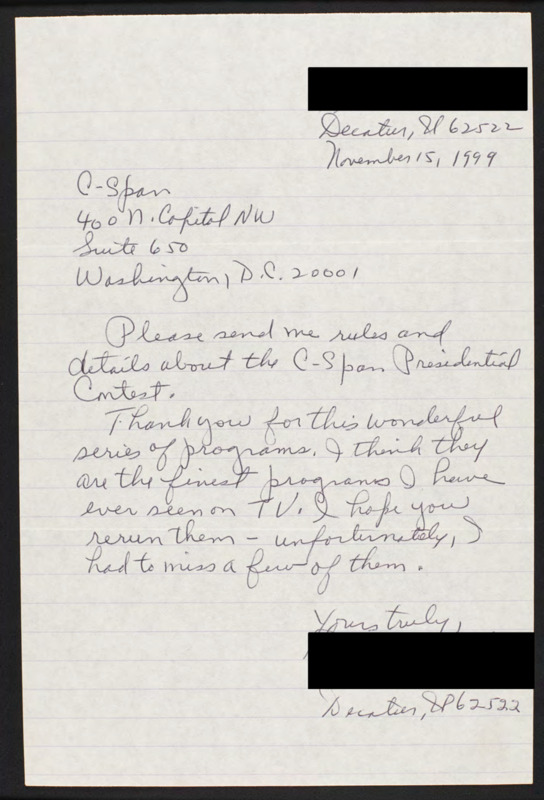 Decatur, Il 62522
November 15, 1999
C-Span
400 N. Capitol NW
Suite 650
Washington, D.C. 20001
Please send me rules and
details about the C-Span Presidential
Contest.
Thank you for this wonderful
series of programs. I think they
are the finest programs I have
ever seen on TV. I hope you
rerun them – unfortunately, I
had to miss a few of them.
Yours truly,
Decatur, Il 62522